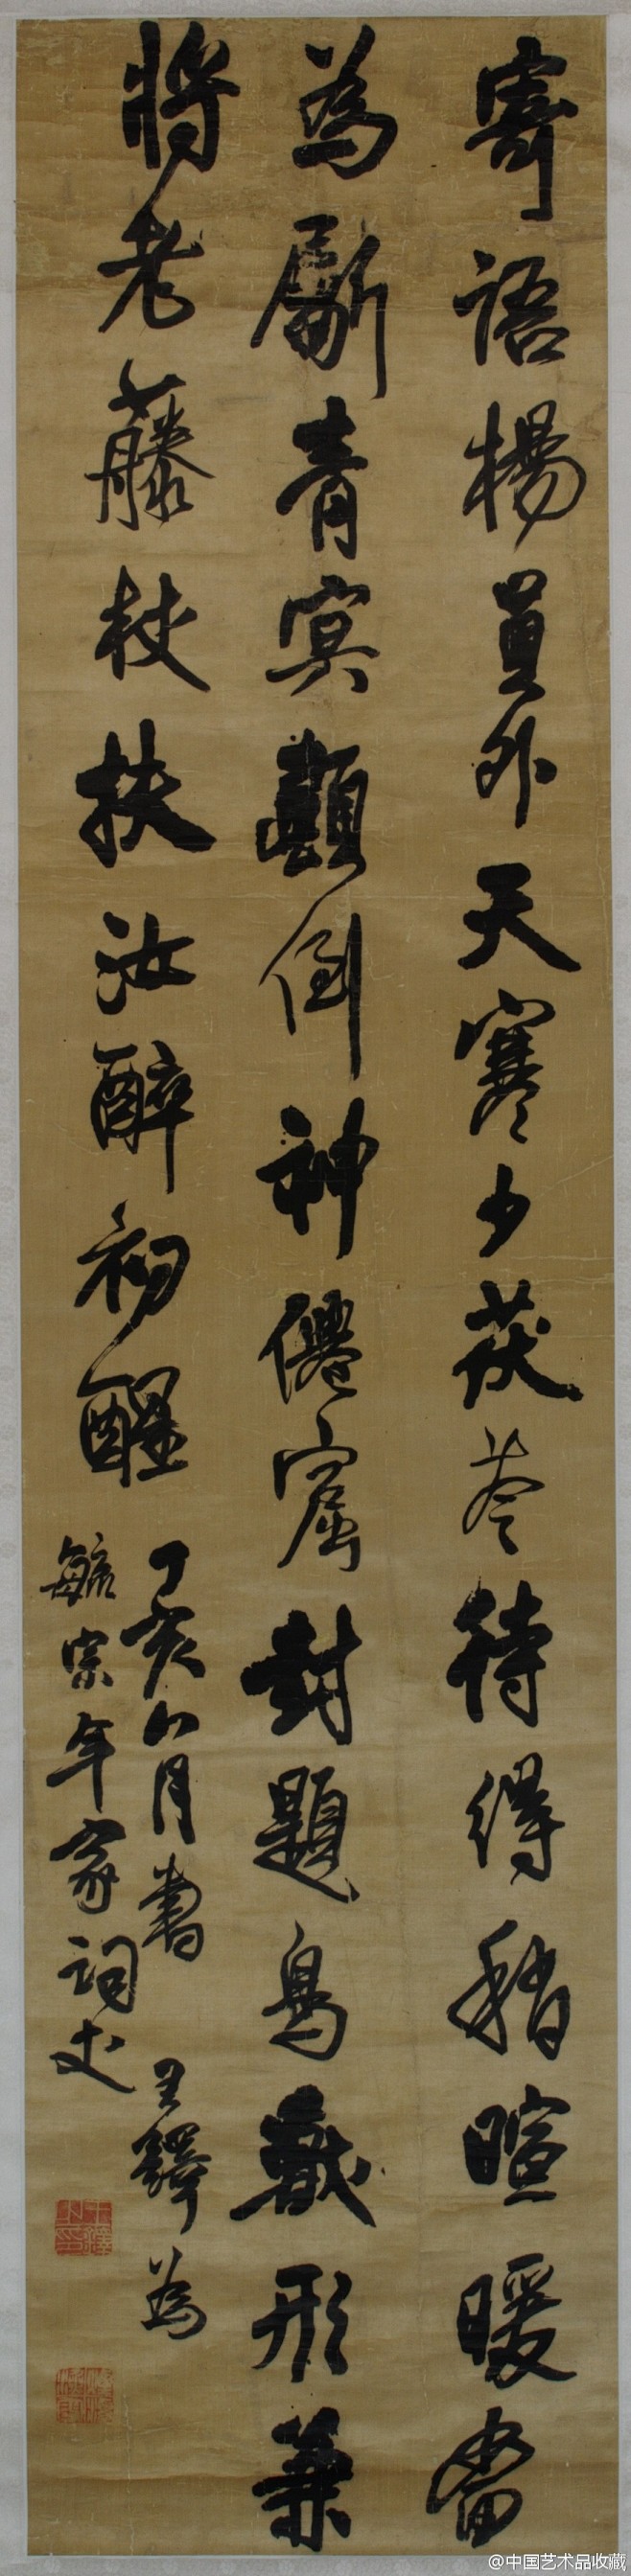 寄語楊員外天寒少茯苓待得稍暄暖當
為劚青冥顛倒神僊窟封題鳥獸形兼
將老藤杖扶汝醉初醒
丁亥八月書王鐸為
毓宗年家詞丈
王鐸之印
@中国艺术品收藏